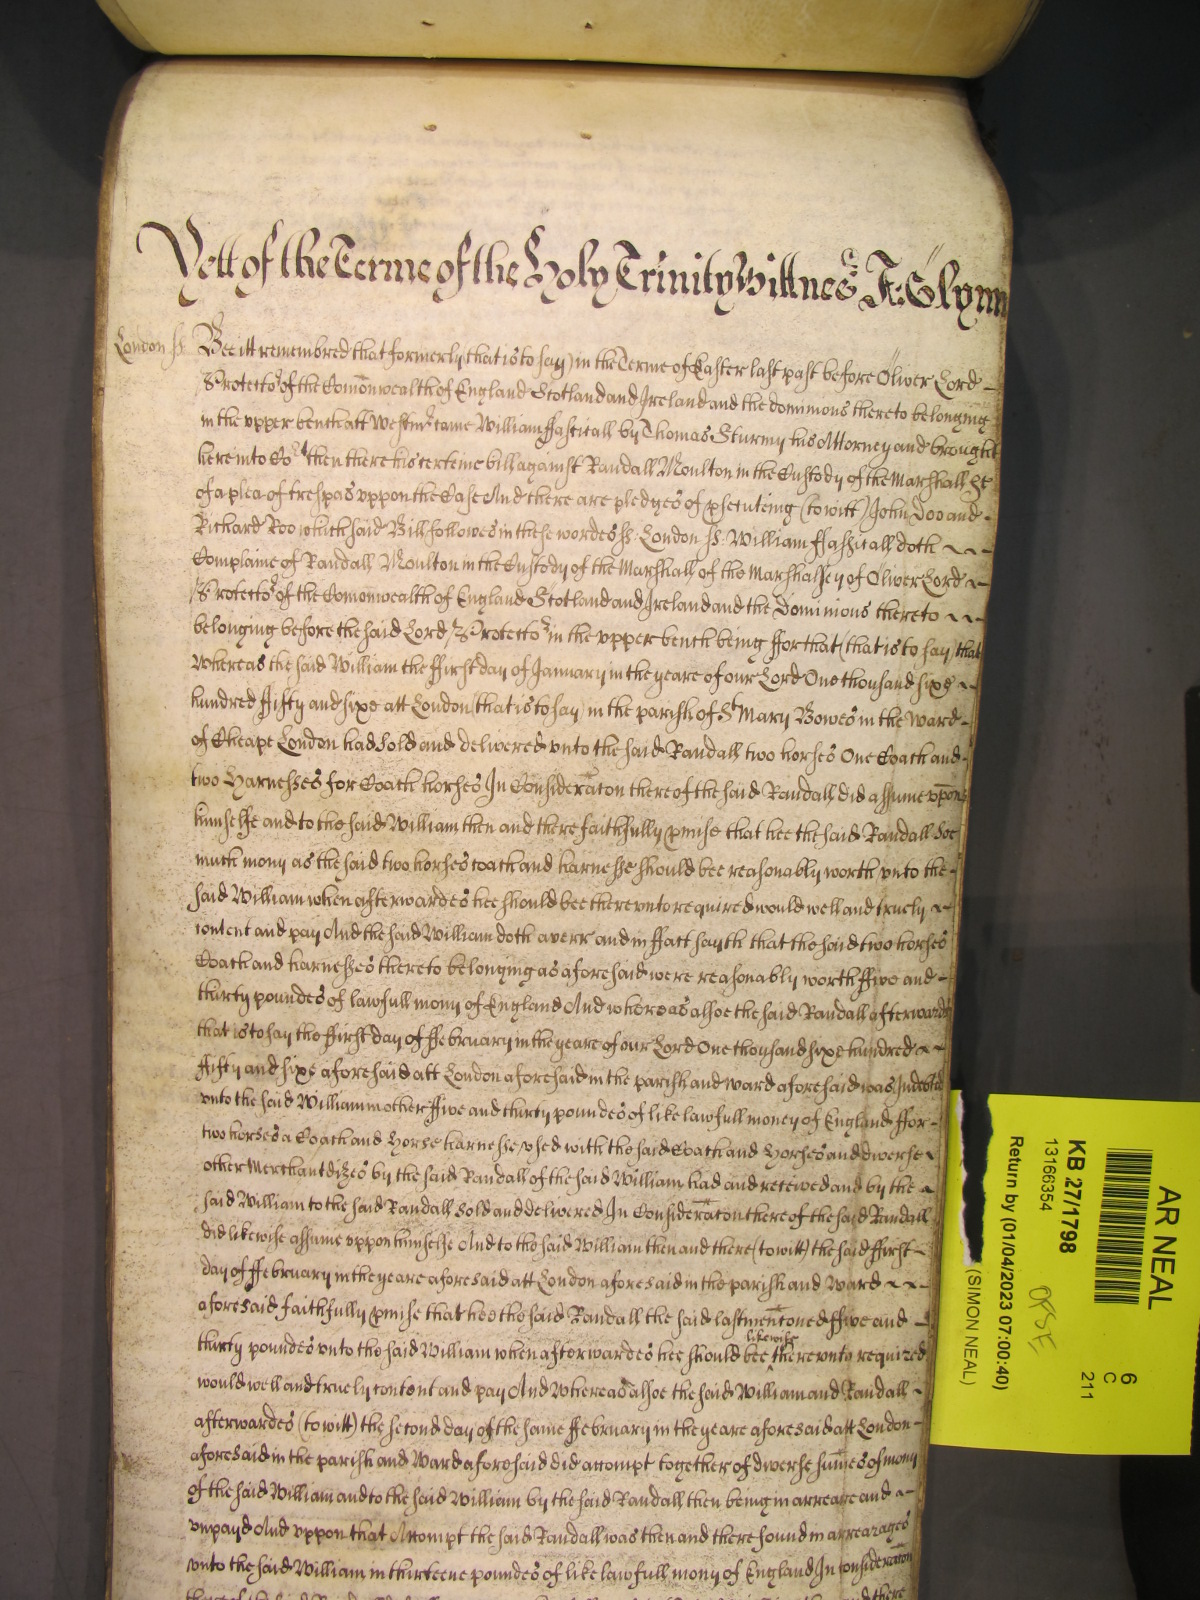 Yett of the Terme of the Holy Trinity Wittnes J: Glynn
London ss: Bee itt remembred that formerly (that is to say) in the Terme of Easter last past before Oliver Lord
Protector of the Comonwealth of England Scotland and Ireland and the dominions thereto belonging
in the upper bench att Westmr came William Hassitall by Thomas Sturmy his Attorney and brought
here into Cot then there his certeine bill against Randall Moulton in the Custody of the Marshall &c
of a plea of trespas uppon the Case And there are pledges of psecuteing (to witt) John Doo and
Richard Roo which said Bill followes in these wordes ss: London ss: William Hassitall doth
Complaine of Randall Moulton in the Custody of the Marshall of the Marshalsey of Oliver Lord
Protector of the Comonwealth of England Scotland and Ireland and the Dominions thereto
belonging before the said Lord Protector in the upper bench being ffor that (that is to say) that
Whereas the said William the ffirst day of January in the yeare of our Lord One thousand sixe
hundred ffifty and sixe att London (that is to say) in the parish of St Mary Bowes in the Ward
of Cheape London had sold and delivered unto the said Randall two horses One Coach and
two Harnesses for Coach horses In Consideracon thereof the said Randall did assume uppon
himselfe and to the said William then and there faithfully pmise that hee the said Randall soe
much mony as the said two horses coach and harnesse should bee reasonably worth unto the
said William when afterwardes hee should bee thereunto required would well and truely
content and pay And the said William doth averr and in ffact sayth that the said two horses
Coach and harnesses thereto belonging as aforesaid were reasonably worth ffive and
thirty poundes of lawfull mony of England And whereas alsoe the said Randall afterwards
that is to say the ffirst day of ffebruary in the yeare of our Lord One thousand sixe hundred
ffifty and sixe aforesaid att London aforesaid in the parish and ward aforesaid was Indebted
unto the said William in other ffive and thirty poundes of like lawfull money of England ffor
two horses a Coach and Horse harnesse used with the said Coach and Horses and diverse
other Merchandizes by the said Randall of the said William had and received and by the
said William to the said Randall sold and delivered In Consideracon thereof the said Randall
did likewise assume uppon himselfe And to the said William then and there (to witt) the said ffirst
day of ffebruary in the yeare aforesaid att London aforesaid in the parish and Ward
aforesaid faithfully pmise that hee the said Randall the said last mencioned ffive and
thirty poundes unto the said William when afterwardes hee should bee likewise thereunto required
would well and truely content and pay And Whereas alsoe the said William and Randall
afterwardes (to witt) the second day of the same ffebruary in the yeare aforesaid att London
aforesaid in the parish and Ward aforesaid did accompt together of diverse sumes of mony
of the said William and to the said William by the said Randall then being in arreare and
unpayd And uppon that Accompt the said Randall was then and there found in arrearages
unto the said William in thirteene poundes of like lawfull mony of England In consideracon
AR NEAL
KB 27/1798
13166354
Return by (01/04/2023 07:00:40)
(SIMON NEAL)
6
C
211